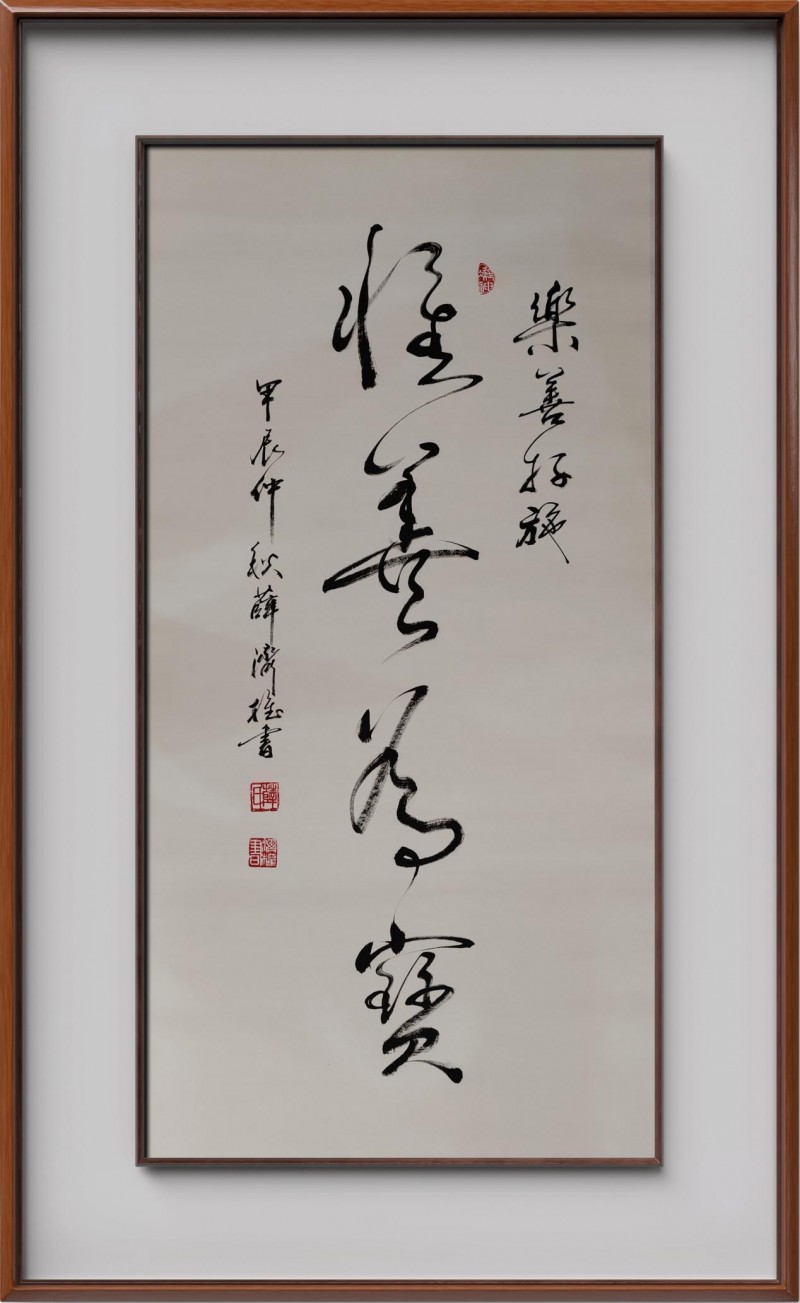 樂善好施
惟善為寶
甲辰仲秋薛濟雄書